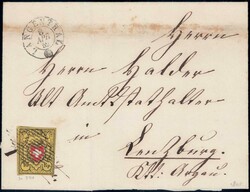 LANGENTHAL
Herrn
Herrn Halder
Alt Amtsstatthalter
in
Lenzburg.
Ktt: Argau.